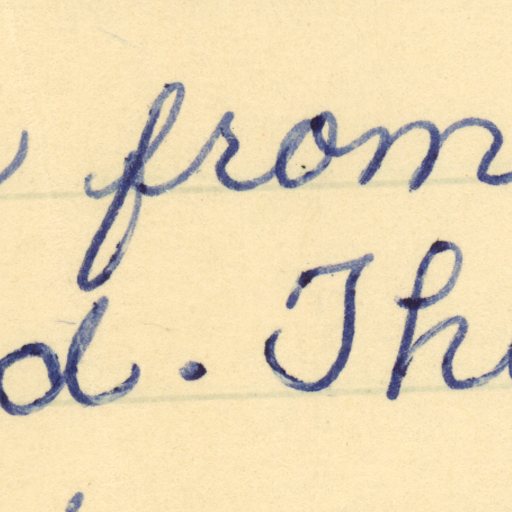 from
d. Th